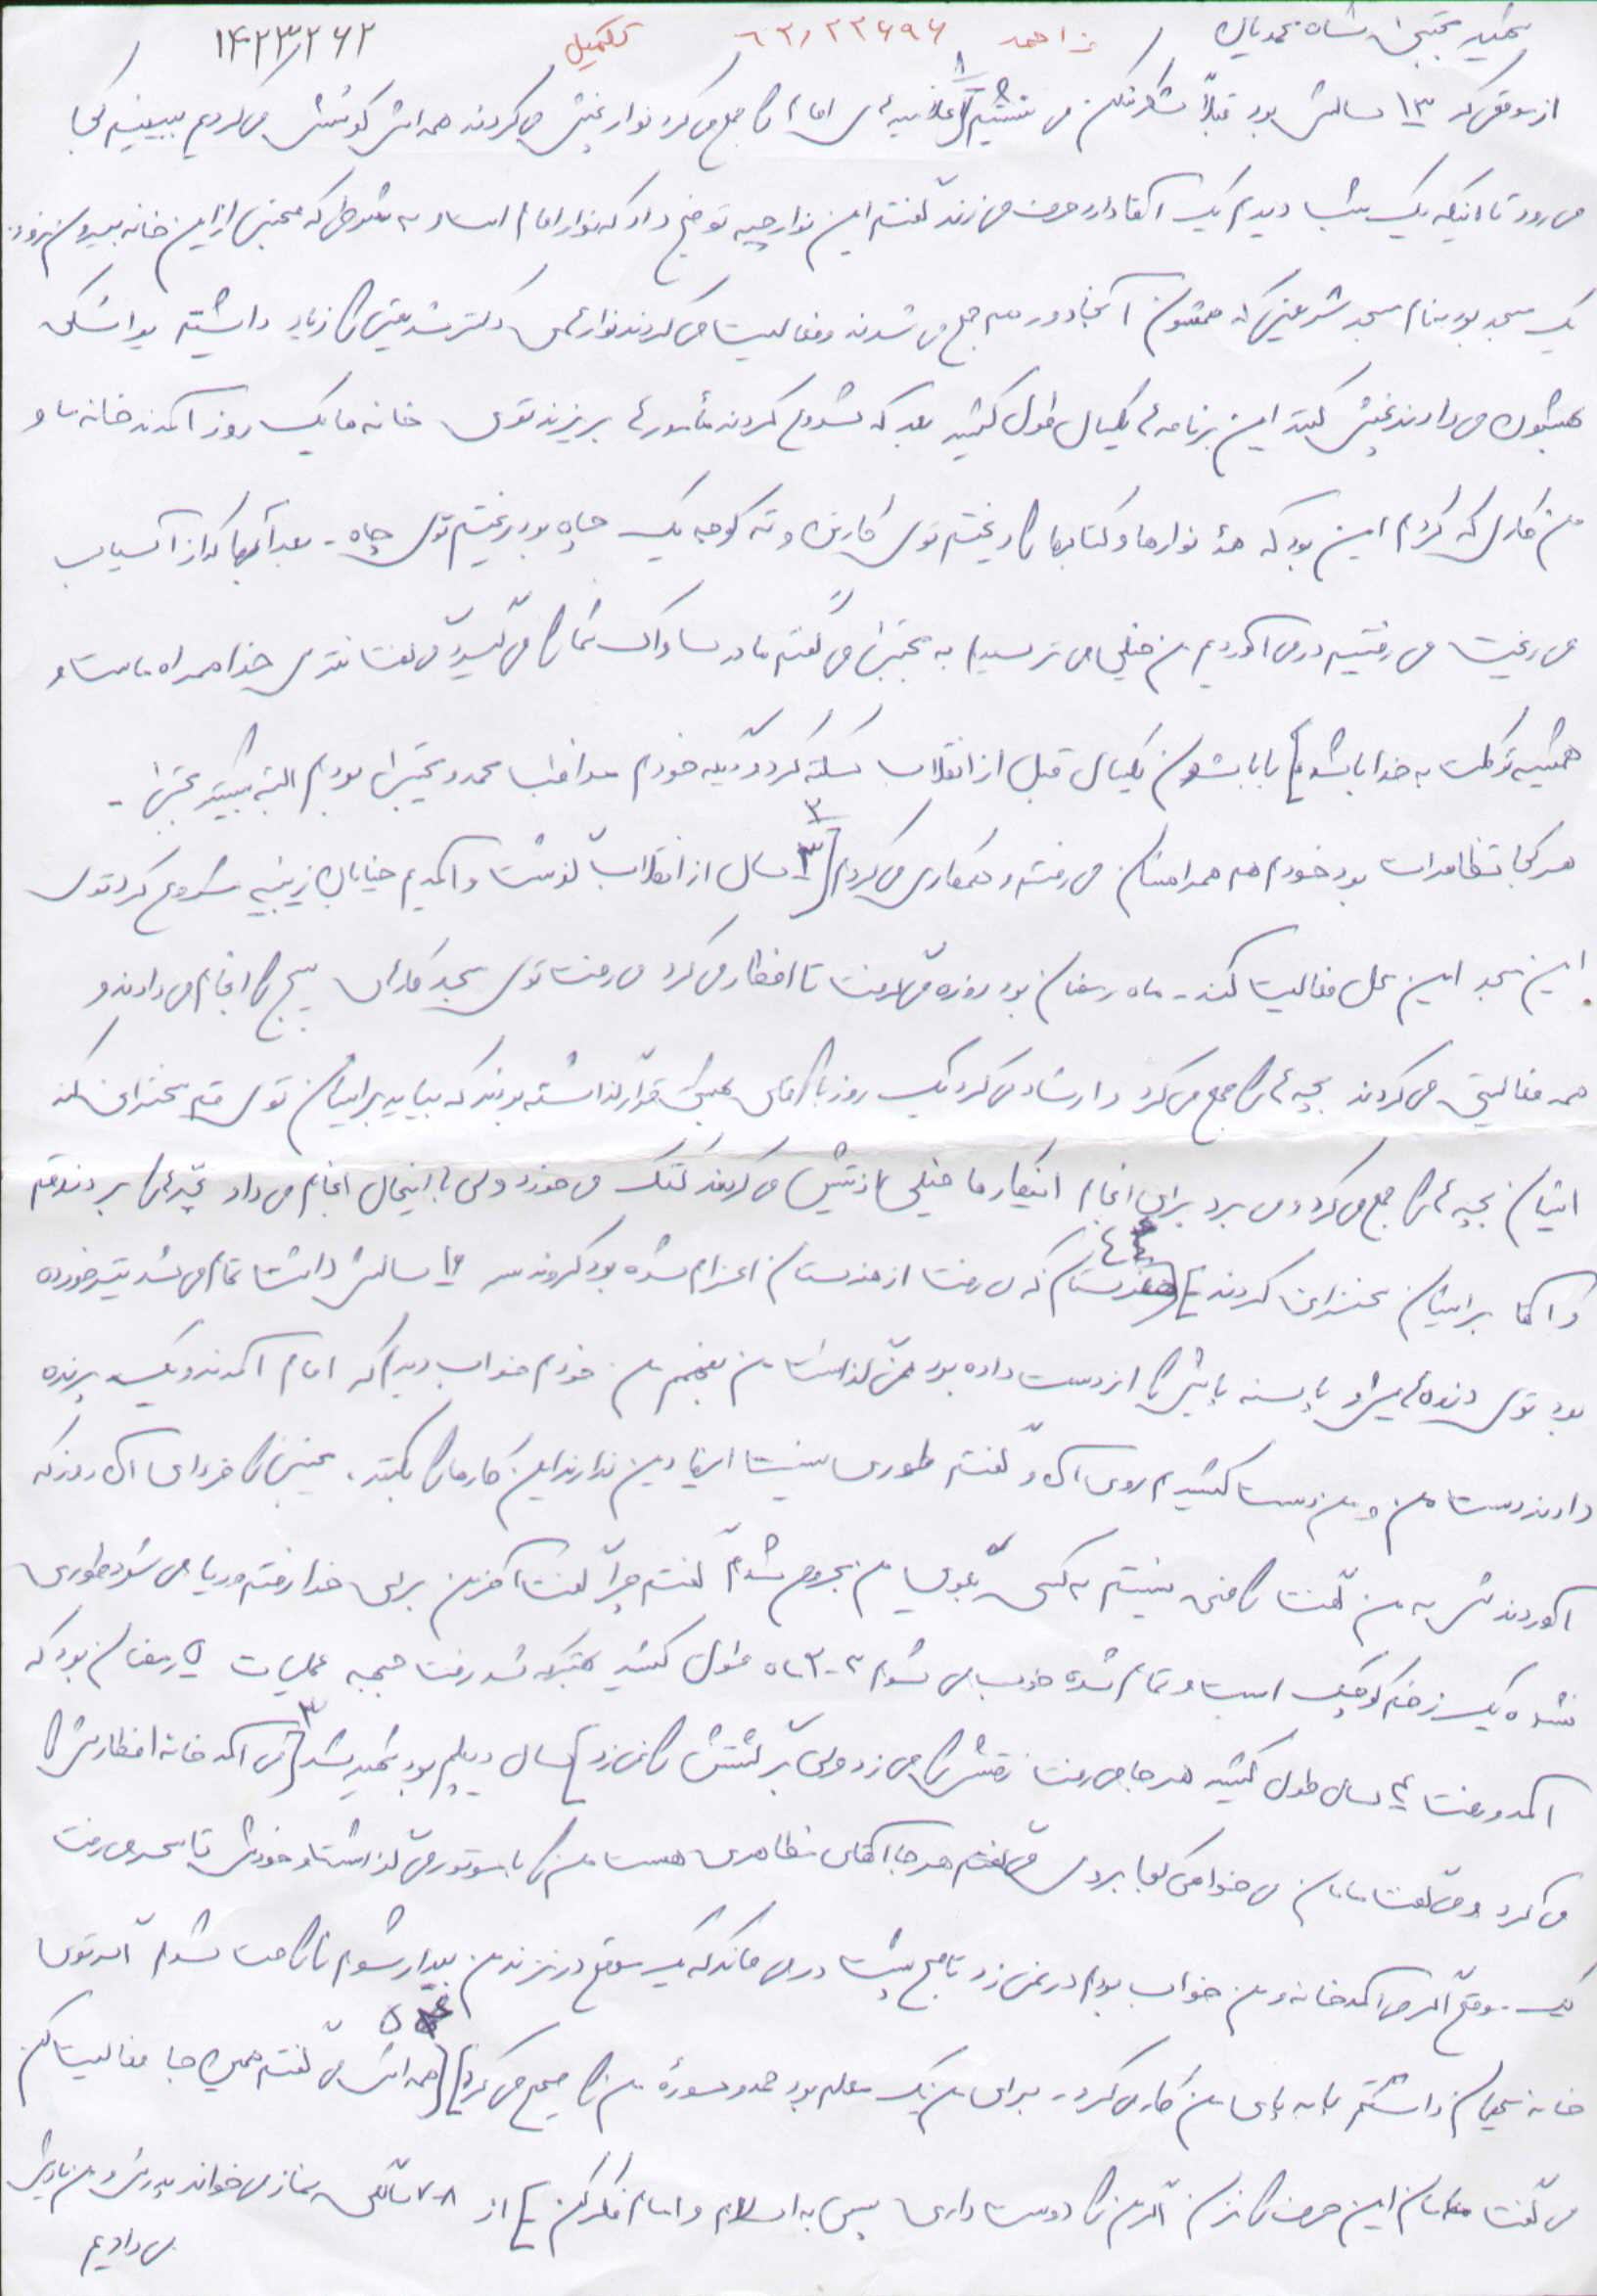 شهید مجتبی شاه محمدیان ز احمد ۶۲/۲۲۶۹۶ تکمیل ۱۴۲۳/۲۶۲
از موقعی که ۱۳ سالش بود قبلاً شکر تنکن می نشستیم [اعلامیه های امام را جمع می کرد نوار پخش می کردند همه اش کوشش می کردیم ببینیم کجا
می رود تا اینکه یک شب دیدم یک آقا دارد حرف می زند گفتم این نوار چیه توضیح داد که نوار امام است به شرطی که مجتبی از این خانه بیرون نرود.
یک مسجد بود بنام مسجد شریفی که همشون آنجا دور هم جمع می شدند و فعالیت می کردند نوارهای دکتر شریعتی را زیاد داشتیم یواشکی
بهشون می دادند پخش کنند این برنامه ها یکسال طول کشید بعد که شروع کردند مأمورها بریزند توی خانه ما یک روز آمدند خانه ما و
من کاری که کردم این بود که همه نوارها و کتابها را ریختم توی کارتن و ته کوچه یک چاه بود ریختیم توی چاه - بعد آنها که از آسیاب
می ریخت می رفتیم در می آوردیم من خیلی می ترسیدم به مجتبی می گفتم مادر ساواک شما را می گیرد می گفت نترس خدا همراه ماست و
همیشه توکلت به خدا باشد] بابا شون یکسال قبل از انقلاب سکته کرد دیگه خودم مواظب محمد و مجتبی بودم البته بیشتر مجتبی -
هر کجا تظاهرات بود خودم هم همراهشان می رفتم و همکاری می کردم [۳ سال از انقلاب گذشت و آمدیم خیابان زینبیه شروع کرد توی
این مسجد این محل فعالیت کند - ماه رمضان بود روزه می گرفت تا افطار می کرد می رفت توی مسجد کارهای بسیج را انجام می دادند و
همه فعالیتی می کردند بچه ها را جمع می کرد و ارشاد می کرد یک روز با آقای قرار گذاشته بودند که بیاید برایشان توی قم سخنرانی کند
ایشان بچه ها را جمع می کرد و می برد برای انجام اینکار ما خیلی اذیتش می کردند کتک می خورد ولی با اینحال انجام می داد بچه ها را بردند قم
و آقا برایشان سخنرانی کردند] [ که می رفت از هنرستان اعزام شده بود کردند ۱۶ سالش داشت تمام می شد تیر خورده
بود توی دنده هایش و پاشنه پایش را از دست داده بود نمی گذاشت من بفهمم من خودم خواب دیدم که امام آمدند و یک پرنده
دادند دست من و من دست کشیدم روی آن و گفتم طوری نیست اینها دین ندارند این کارها را بکنند. مجتبی را فردای آن روز که
آوردندش به من گفت راضی نیستم به کسی بگویی من مجروح شدم گفتم چرا گفت آخر من برای خدا رفتم و ریا می شود طوری
نشده یک زخم کوچک است و تمام شده خوب می شوم ۲-۳ ماه طول کشید بهتر که شد رفت جبهه عملیات رمضان بود که
آمد و رفت ۲ سال طول کشید هر جا می رفت زنگش را می زد ولی برگشتش را نمی زد] سال دیپلم بود شهید شد [می آمد خانه افطارش را
می کرد و می گفت مامان می خواهی کجا بروی می گفتم هر جا آقای مظاهری هست من را با موتور می گذاشت و خودش تا سحر می رفت
یک موقع اگر می آمد خانه و من خواب بودم در نمی زد تا صبح پشت در می ماند که یک موقع در نزند من بیدار شوم ناراحت شوم اگر توی
خانه مهمان داشتم پا به پای من کار می کرد - برای من یک معلم بود حمد و سوره من را صحیح می کرد] [همه اش می گفتم همین جا فعالیت کن
می گفت مامان این حرف را نزن اگر من را دوست داری پس به اسلام و امام فکر کن] از ۷-۸ سالگی نماز می خواند پدرش و من یادش
می دادیم